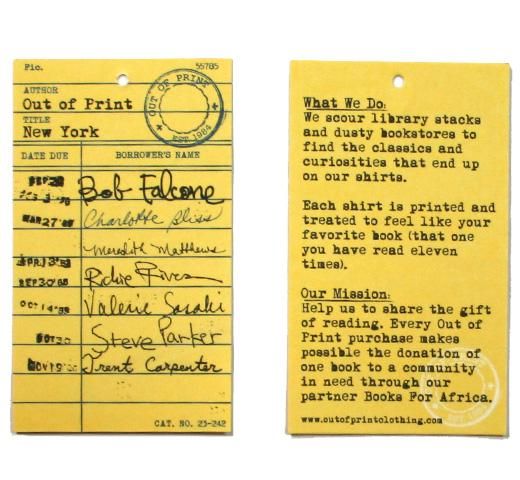 Fic. 55785
AUTHOR
Out of Print
TITLE
New York
OUT OF PRINT
EST. 1984
DATE DUE BORROWER'S NAME
SEP 30 Bob Falcone
Charlotte Bliss
MAR 27
Meredith Matthews
APR 13
Richie Rivera
SEP 30
OCT 14 Valerie Sasaki
OCT 30 Steve Parker
NOV 19 Trent Carpenter
CAT. NO. 23-242
What We Do:
We scour library stacks
and dusty bookstores to
find the classics and
curiosities that end up
on our shirts.
Each shirt is printed and
treated to feel like your
favorite book (that one
you have read eleven
times).
Our Mission:
Help us to share the gift
of reading. Every Out of
Print purchase makes
possible the donation of
one book to a community
in need through our
partner Books For Africa.
www.outofprintclothing.com